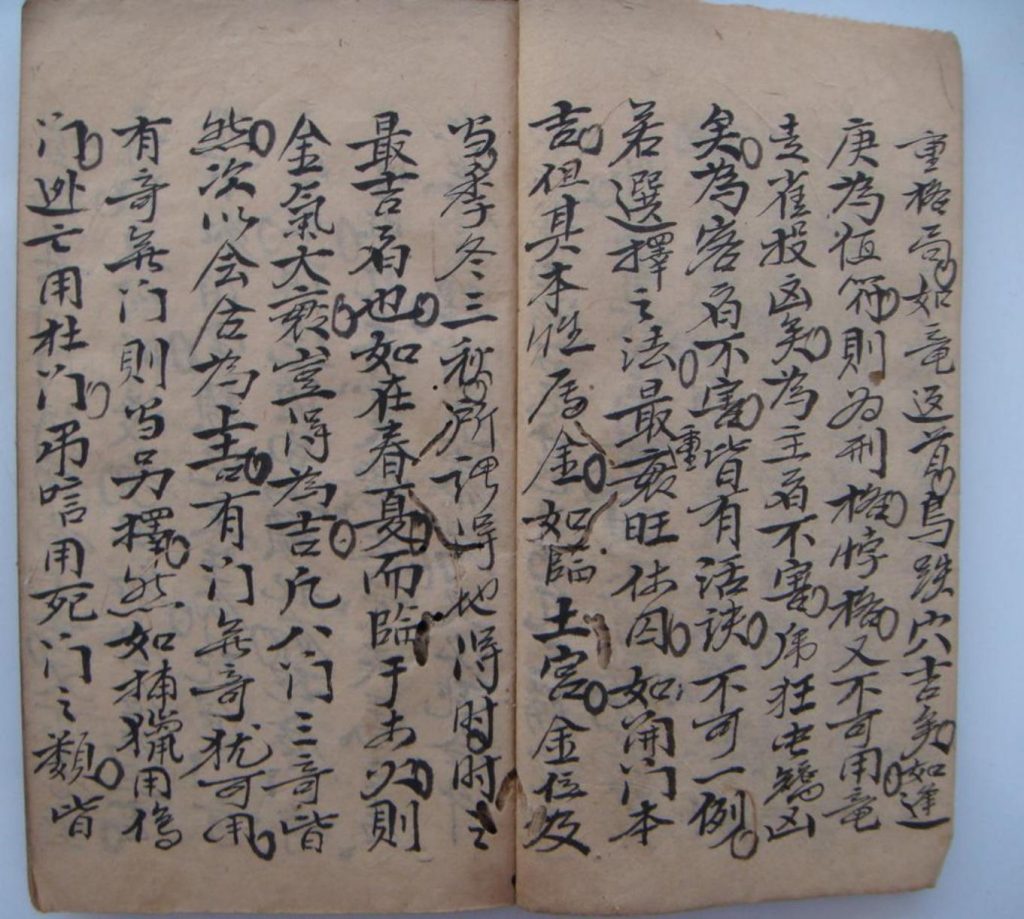 重格而如竜返首鳥跌穴吉矣如逢
庚為值符則为刑格悖格又不可用竜
走雀投凶矣為主者不害虎狂虫矯凶
矣為客者不害皆有活訣不可一例
若選擇之法最重衰旺休囚如開门本
吉但其本性属金如臨土宮金位及
当季冬三秋所謂得地得时时之
最吉者也如在春夏而臨于木火則
金氣大衰豈得為吉凡八门三奇皆
然次以会合為上吉有门無奇犹可用
有奇無门則当另擇然如捕獵用傷
门逃亡用杜门吊唁用死门之類皆